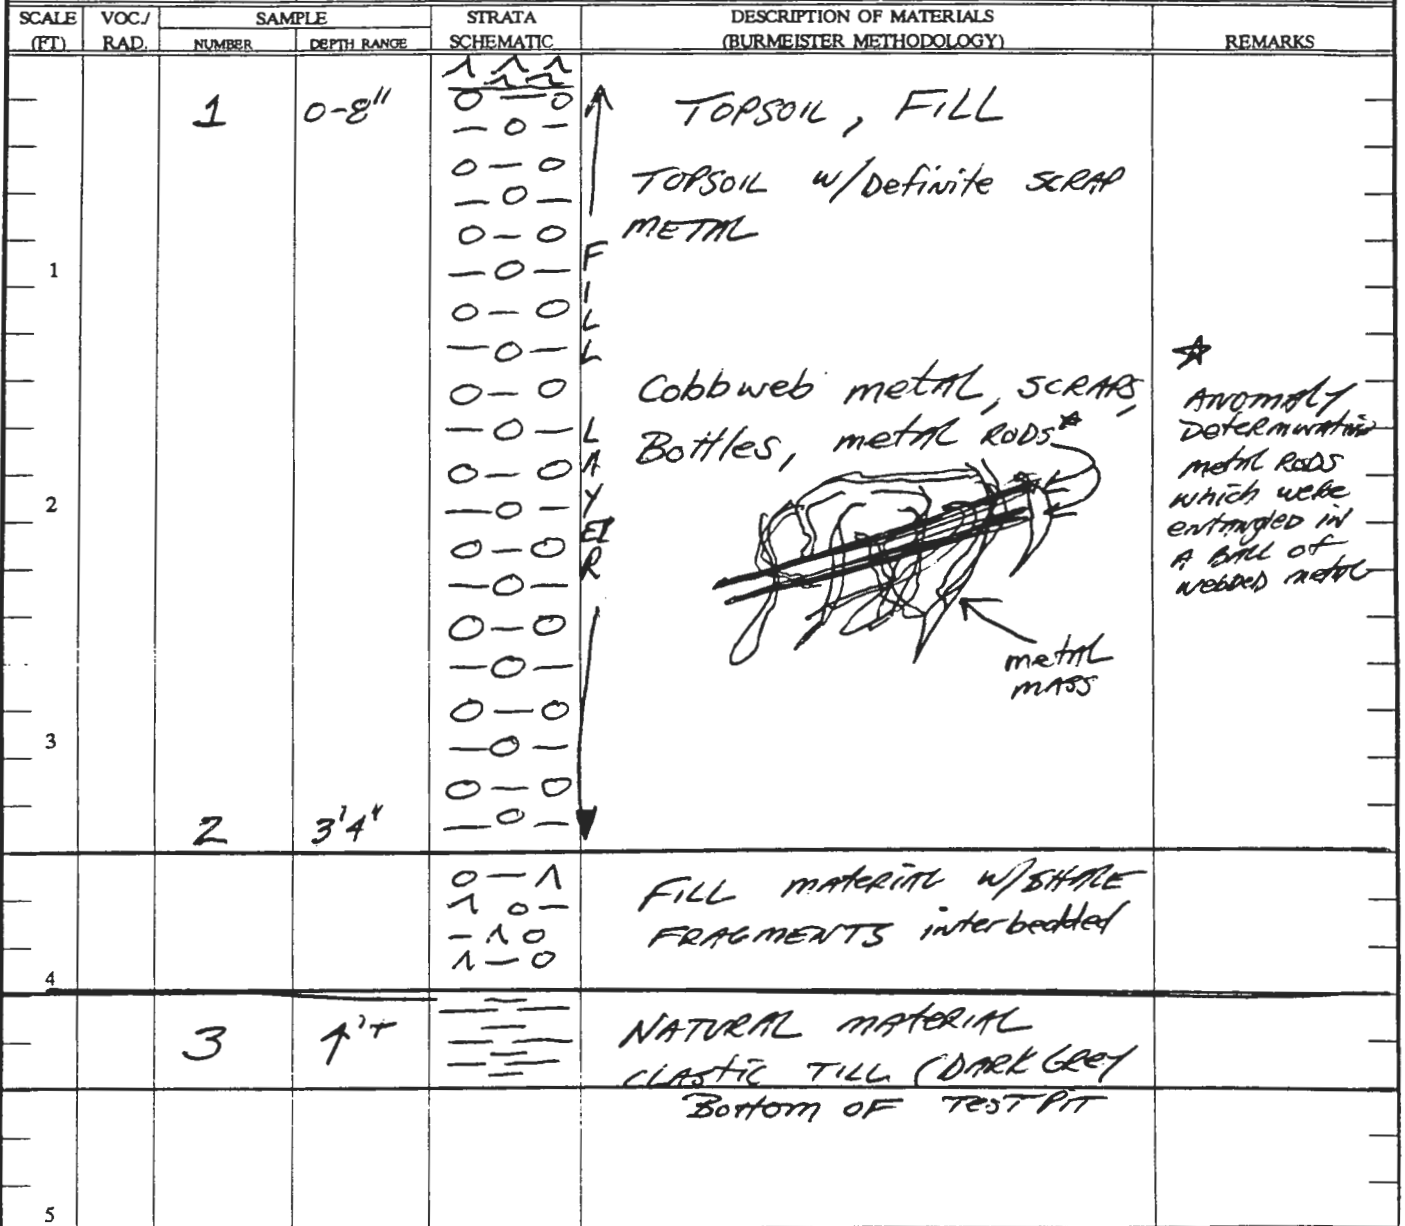 SCALE (FT)
VOC./ RAD.
SAMPLE
NUMBER
DEPTH RANGE
STRATA SCHEMATIC
DESCRIPTION OF MATERIALS
(BURMEISTER METHODOLOGY)
REMARKS
1
0-8"
TOPSOIL, FILL
TOPSOIL w/Definite SCRAP
METAL
1
FILL LAYER
Cobbweb metAL, SCRAPS,
Bottles, metAL RODS☆
☆
Anomaly
Determination
metAL RODS
which were
entangled in
A BALL of
webbed metal
2
metAL
mASS
3
2
3'4"
FILL mAteriAL w/SHALE
FRAGMENTS interbedded
4
3
NATURAL mAteRIAL
CLAStic TILL (DARK GREY
Bottom OF TEST PIT
5